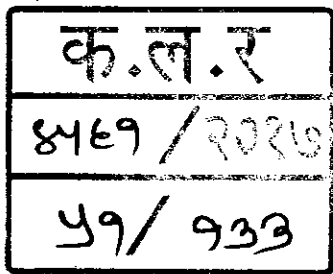 क.ल.र
४५६१ / २०१७
५१/ १३३